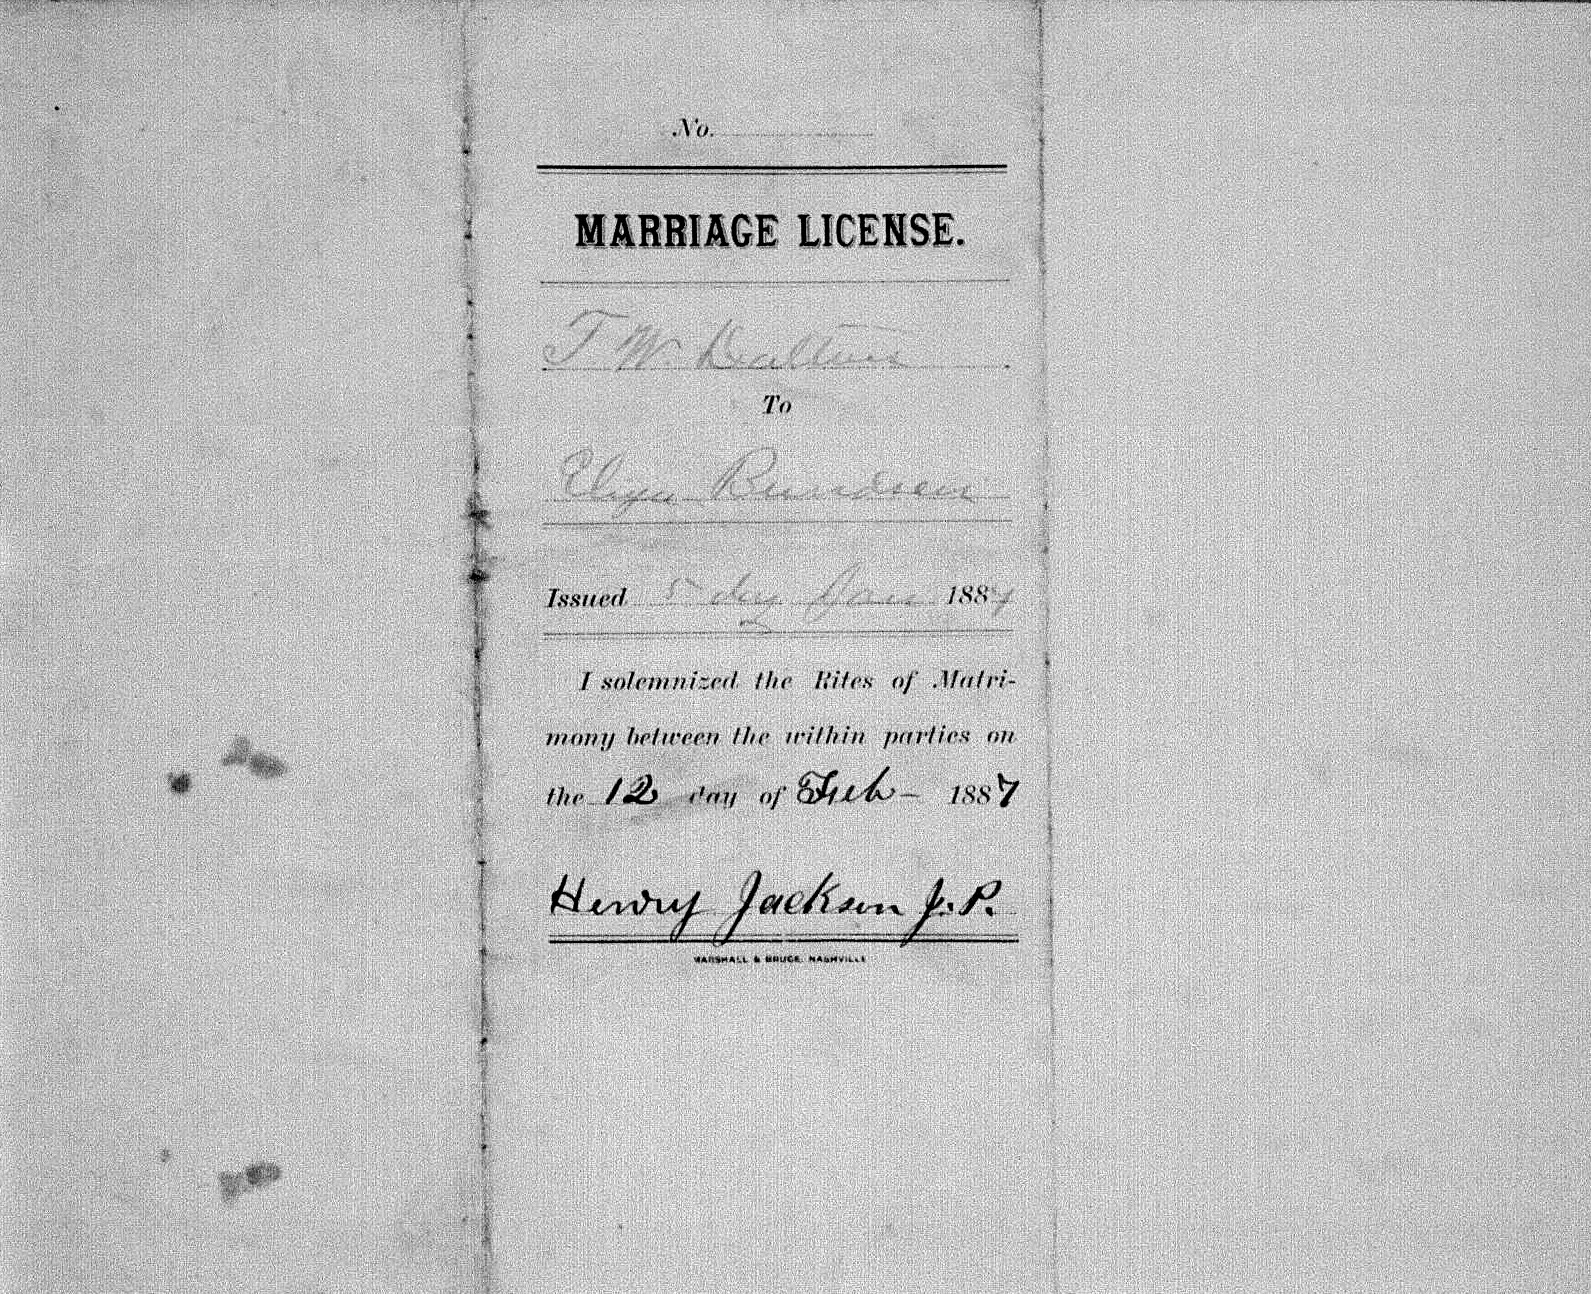 No.
MARRIAGE LICENSE.
T. W.
To
Eliza
Issued 5 day Jan 1887
I solemnized the Rites of Matri-
mony between the within parties on
the 12 day of Feb - 1887
Henry Jackson J. P.
MARSHALL & BRUCE, NASHVILLE